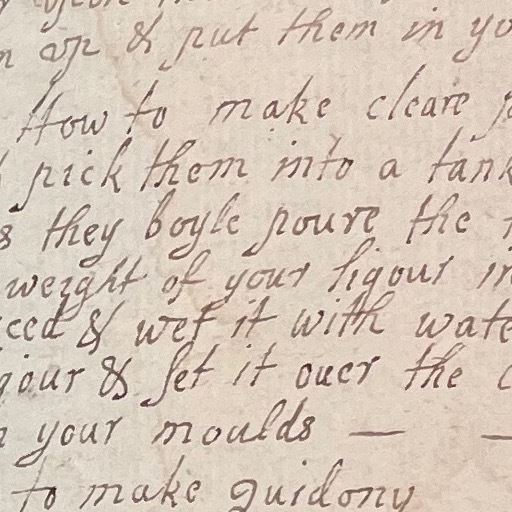 up & put them in yo
How to make cleare
pick them into a tank
they boyle poure the
weight of your liqour in
& wet it with wate
& set it ouer the
your moulds — —
to make guidony